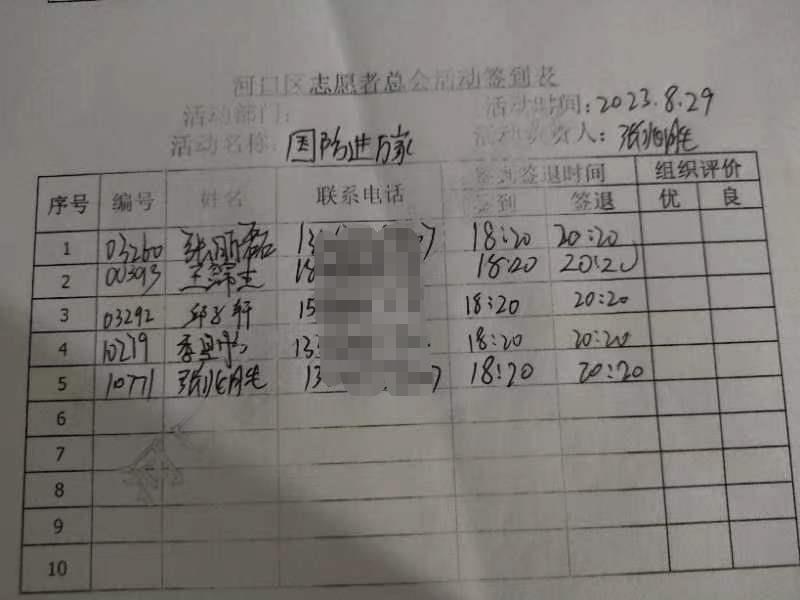 河口区志愿者总会活动签到表
活动部门： 活动时间：2023.8.29
活动名称：国防进万家 活动负责人：张兆胜
序号 编号 姓名 联系电话 签到签退时间 组织评价
签到 签退 优 良
1 03260 张丽磊 13 18:20 20:20
2 00393 王 18 18:20 20:20
3 03292 邱 轩 15 18:20 20:20
4 10219 李 13 18:20 20:20
5 10771 张兆胜 13 18:20 20:20
6
7
8
9
10